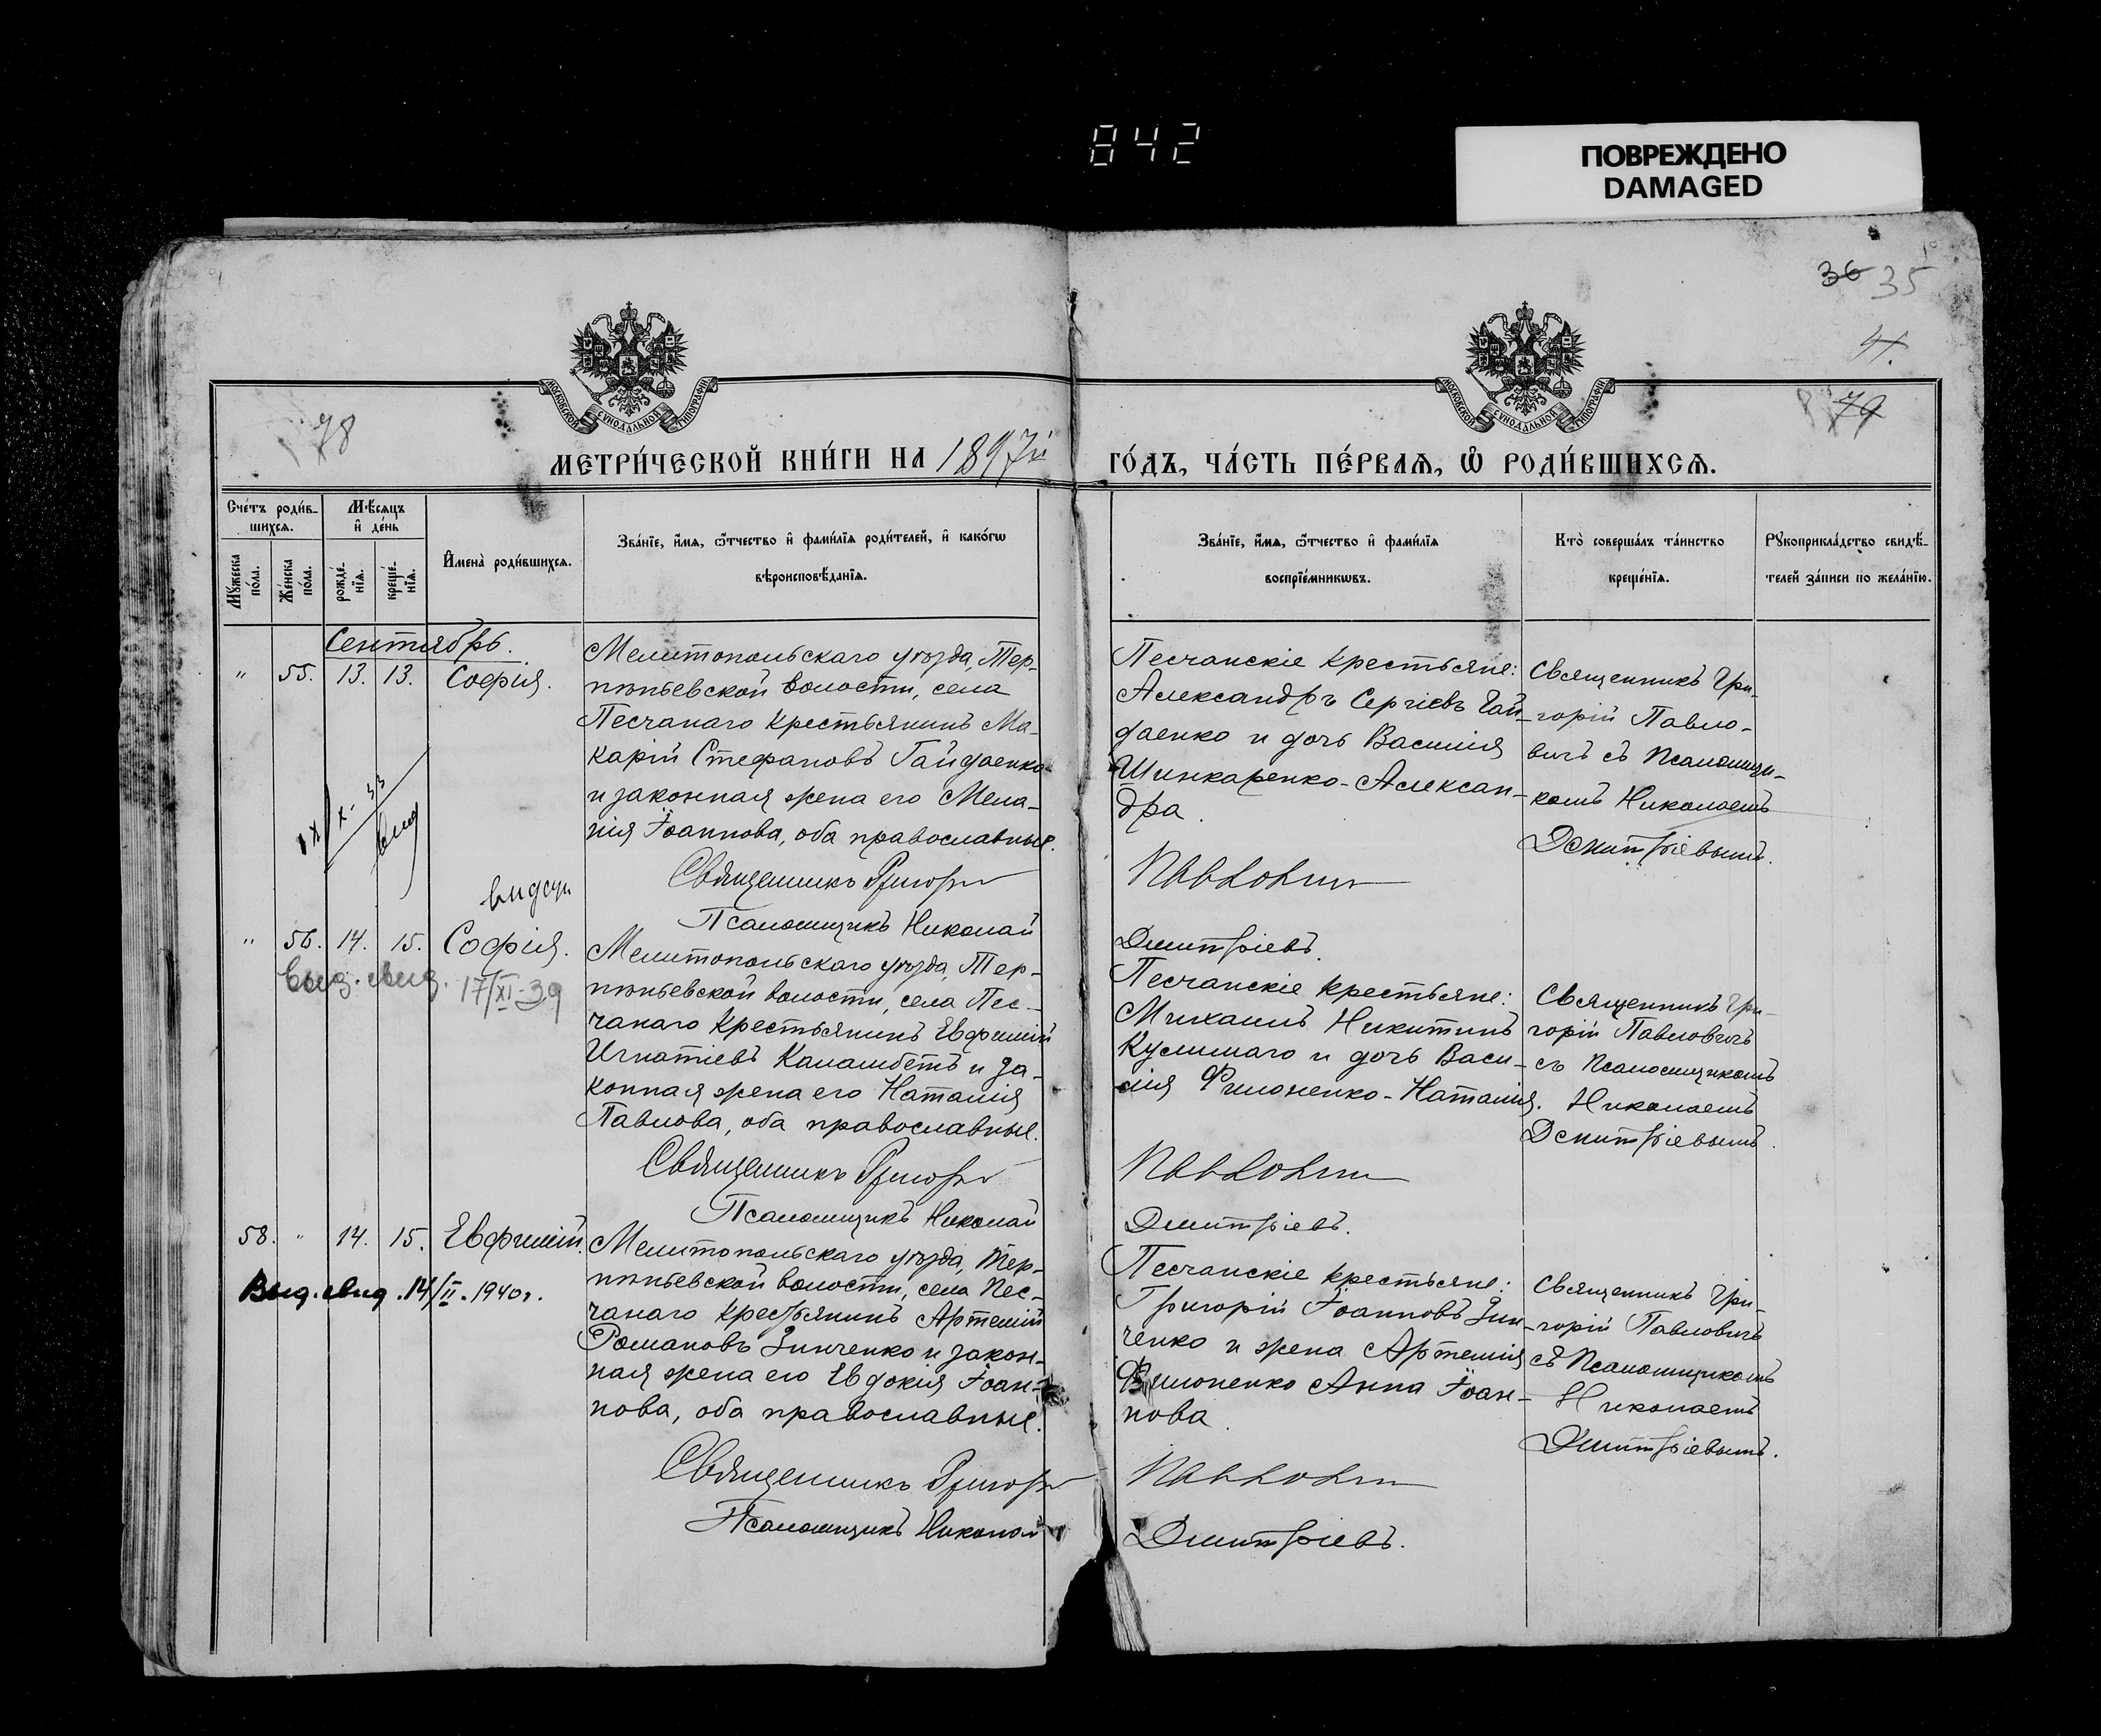 842
ПОВРЕЖДЕНО
DAMAGED
36 35
4.
78
79
МОСКОВСКОЙ СУНОДАЛЬНОЙ ТИПОГРАФІИ
МОСКОВСКОЙ СУНОДАЛЬНОЙ ТИПОГРАФІИ
МЕТРИ́ЧЕСКОЙ КНИ́ГИ НА 1897й
ГО́ДЪ, ЧА́СТЬ ПЕ́РВАЯ, Ѽ РОДИ́ВШИХСЯ.
Сче́тъ роди́в-
шихся.
Мѣ́сяцъ
и҆ де́нь
Мꙋ́жеска
по́ла.
Же́нска
по́ла.
рожде́-
нїя.
креще́-
нїя.
И҆мена̀ роди́вшихся.
Зва́нїе, и҆́мя, ѻ҆́тчество и҆ фами́лїя роди́телей, и҆ како́гѡ
вѣроисповѣ́данїя.
Зва́нїе, и҆́мя, ѻ҆́тчество и҆ фами́лїя
воспрїе́мникѡвъ.
Кто̀ соверша́лъ та́инство
креще́нїя.
Рꙋкоприкла́дство свидѣ́-
телей за́писи по жела́нїю.
Сентябрь.
" 55. 13. 13. Софія.
Мелитопольскаго уѣзда, Тер-
пѣньевской волости, села
Песчанаго крестьянинъ Ма-
карій Стефановъ Гайдаенко
и законная жена его Мела-
нія Іоаннова, оба православные.
Священникъ Григорій
Псаломщикъ Николай
Песчанскіе крестьяне:
Александръ Сергіевъ Гай-
даенко и дочь Василія
Шинкаренко-Алексан-
дра.
Павловичъ
Дмитріевъ.
Священникъ Гри-
горій Павло-
вичъ съ Псаломщи-
комъ Николаемъ
Дмитріевымъ.
X-33
" 56. 14. 15. София.
Выд. свид. 17/XI-39
Мелитопольскаго уѣзда, Тер-
пѣньевской волости, села Пес-
чанаго крестьянинъ Евфимій
Игнатіевъ Каламбетъ и за-
конная жена его Наталія
Павлова, оба православные.
Священникъ Григорій
Псаломщикъ Николай
Песчанскіе крестьяне:
Михаилъ Никитинъ
и дочь Васи-
лія Филоненко-Наталія.
Павловичъ
Дмитріевъ.
Священникъ Гри-
горій Павловичъ
съ Псаломщикомъ
Николаемъ
Дмитріевымъ.
58. " 14. 15. Евфимій.
Выд. свид. 14/II. 1940г.
Мелитопольскаго уѣзда, Тер-
пѣньевской волости, села Пес-
чанаго крестьянинъ Артемій
Романовъ Зинченко и закон-
ная жена его Евдокія Іоан-
нова, оба православные.
Священникъ Григорій
Псаломщикъ Николай
Песчанскіе крестьяне:
Григорій Іоанновъ Зин-
ченко и жена Артемія
Филоненко Анна Іоан-
нова.
Павловичъ
Дмитріевъ.
Священникъ Гри-
горій Павловичъ
съ Псаломщикомъ
Николаемъ
Дмитріевымъ.